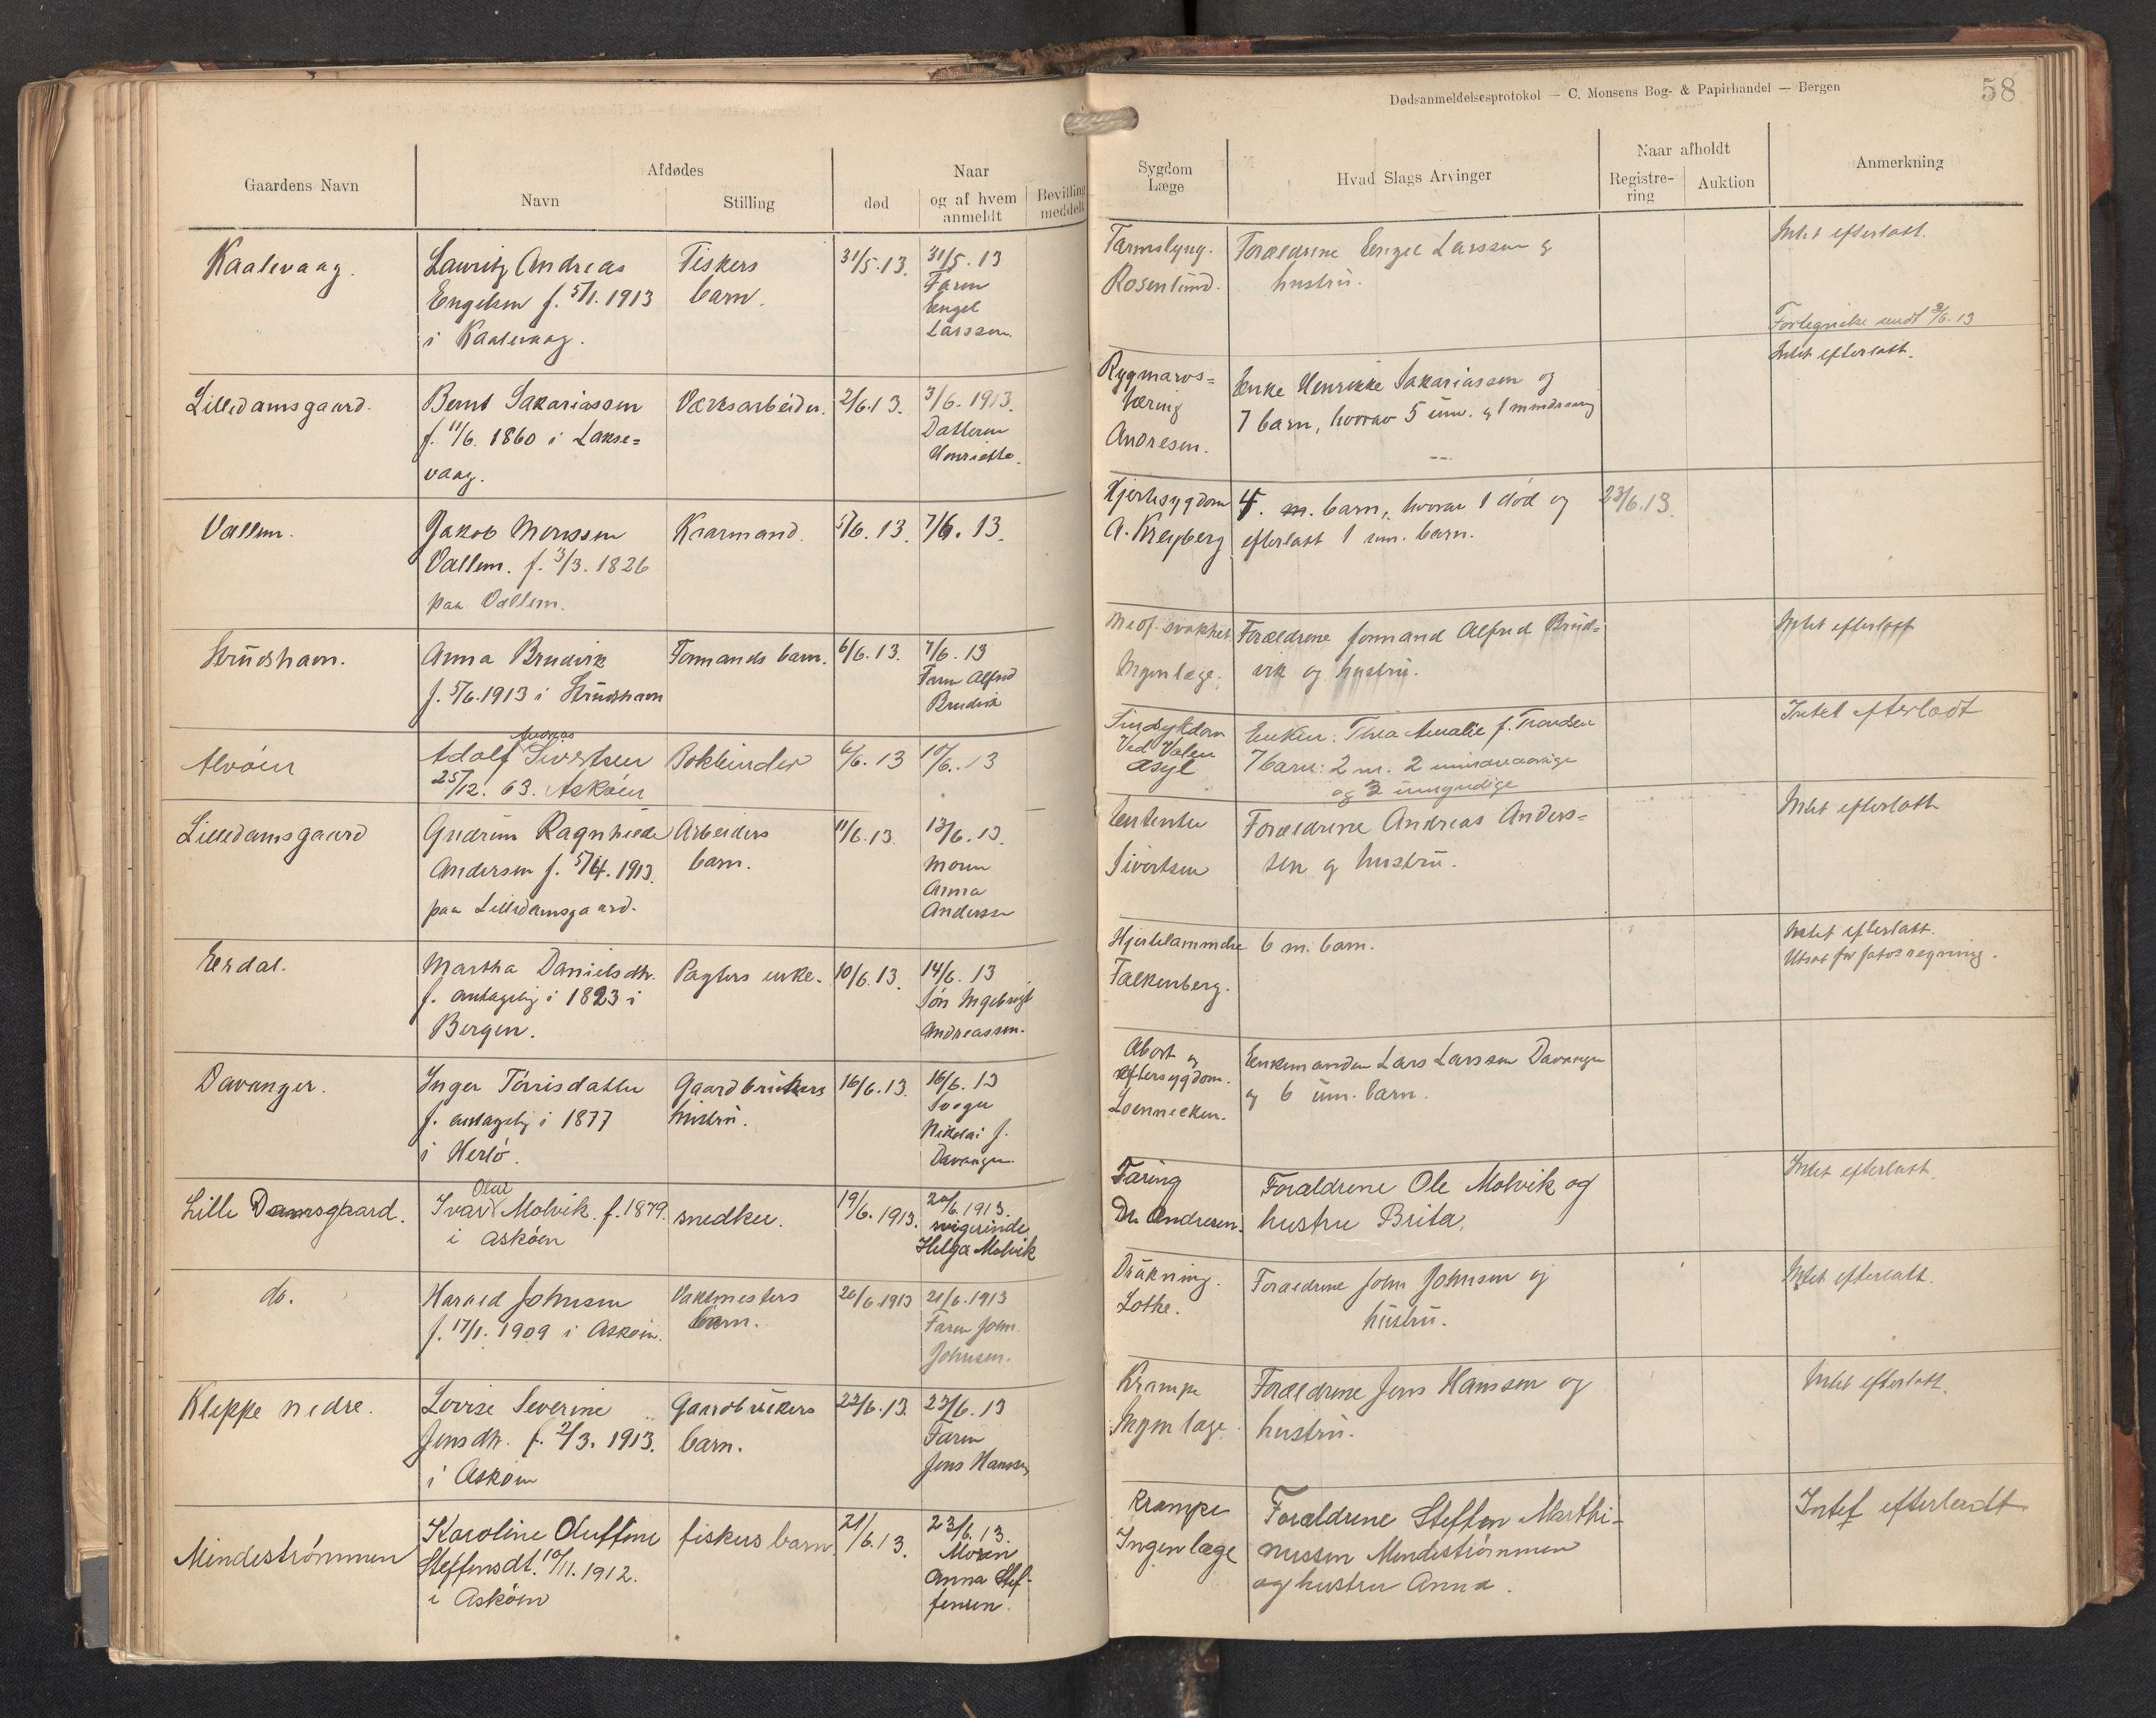 Dødsanmeldelsesprotokol — C. Monsens Bog- & Papirhandel — Bergen
58
Gaardens Navn
Afdødes
Navn
Stilling
død
Naar
og af hvem
anmeldt
Bevilling
meddelt
Sygdom
Læge
Hvad Slags Arvinger
Naar afholdt
Registre-
ring
Auktion
Anmerkning
Kaalevaag.
Lauritz Andreas
Engelsen f. 5/1. 1913
i Kaalevaag.
Fiskers
barn.
31/5.13.
31/5.13
Faren
Engel
Larssen.
Tarmslyng.
Rosenlund.
Forældrene Engel Larssen og
hustru.
Intet efterlatt.
Fortegnelse sendt 3/6.13
Lilledamsgaard.
Bernt Sakariassen
f. 11/6. 1860 i Lakse=
vaag.
Værksarbeider.
2/6.13.
3/6.1913.
Datteren
Henriette.
Rygmarvs=
tæring
Andresen.
Enke Henrikke Sakariassen og
7 barn, hvorav 5 um. og 1 mindreaarig
Intet efterlatt.
Vallem.
Jakob Monssen
Vallem. f. 3/3. 1826
paa Vallem.
Kaarmand.
5/6.13.
7/6.13.
Hjertesygdom
A. Kreyberg
4. m. barn, hvorav 1 død og
efterlatt 1 um. barn.
23/6.13.
Strudshavn.
Anna Brudvik
f. 5/6.1913 i Strudshavn
Formands barn.
6/6.13.
7/6.13
Faren Alfred
Brudvik
Medf. svakhet
Ingen læge.
Forældrene formand Alfred Brud-
vik og hustru.
Intet efterlatt
Alvøen
Andreas
Adolf Sivertsen
25/12. 63. Askøen
Bokbinder
6/6.13
10/6.13
Sindsykdom
Ved Valen
asyl
Enken: Thea Amalie f. Trondsen
7 barn: 2 m. 2 mindreaarige
og 3 umyndige
Intet efterladt
Lilledamsgaard
Gudrun Ragnhild
Andersen f. 5/4. 1913.
paa Lilledamsgaard.
Arbeiders
barn.
11/6.13.
13/6.13.
Moren
Anna
Andersen
Sivertsen
Forældrene Andreas Anders=
sen og hustru.
Intet efterlatt
Erdal.
Martha Danielsdtr.
f. antagelig i 1823 i
Bergen.
Pagters enke.
10/6.13.
14/6.13
Søn Ingebrigt
Andreassen.
Hjertelammelse
Falkenberg.
6 m. barn.
Intet efterlatt.
Davanger.
Inger Tørrisdatter
f. antagelig i 1877
i Herlø.
Gaardbrukers
hustru.
16/6.13.
16/6.13
Svoger
Nikolai J.
Davanger.
Abort og
eftersygdom.
Loennecken.
Enkemanden Lars Larssen Davanger
og 6 um. barn.
Lille Damsgaard.
Olai
Ivar Molvik. f. 1879.
i Askøen
snedker.
19/6.1913.
20/6.1913.
svigerinde
Helga Molvik
Tæring
Dr. Andresen.
Forældrene Ole Molvik og
hustru Brita.
Intet efterlatt.
do.
Harald Johnsen
f. 17/1. 1909 i Askøen.
Vaktmesters
barn.
20/6.1913
21/6.1913
Faren John
Johnsen.
Drukning.
Lothe.
Forældrene John Johnsen og
hustru.
Intet efterlatt.
Kleppe nedre.
Lovise Severine
Jensdtr. f. 2/3. 1913.
i Askøen
Gaardbrukers
barn.
22/6.13.
23/6.13
Faren
Jens Hanssen
Krampe
Ingen læge.
Forældrene Jens Hanssen og
hustru.
Intet efterlatt.
Mindestrømmen
Karoline Oluffine
Steffensdt. 10/11. 1912.
i Askøen
fiskers barn
21/6.13.
23/6.13.
Moren
Anna Stef-
fensen.
Krampe
Ingen læge
Forældrene Steffen Marthi-
nussen Mindestrømmen
og hustru Anna.
Intet efterladt